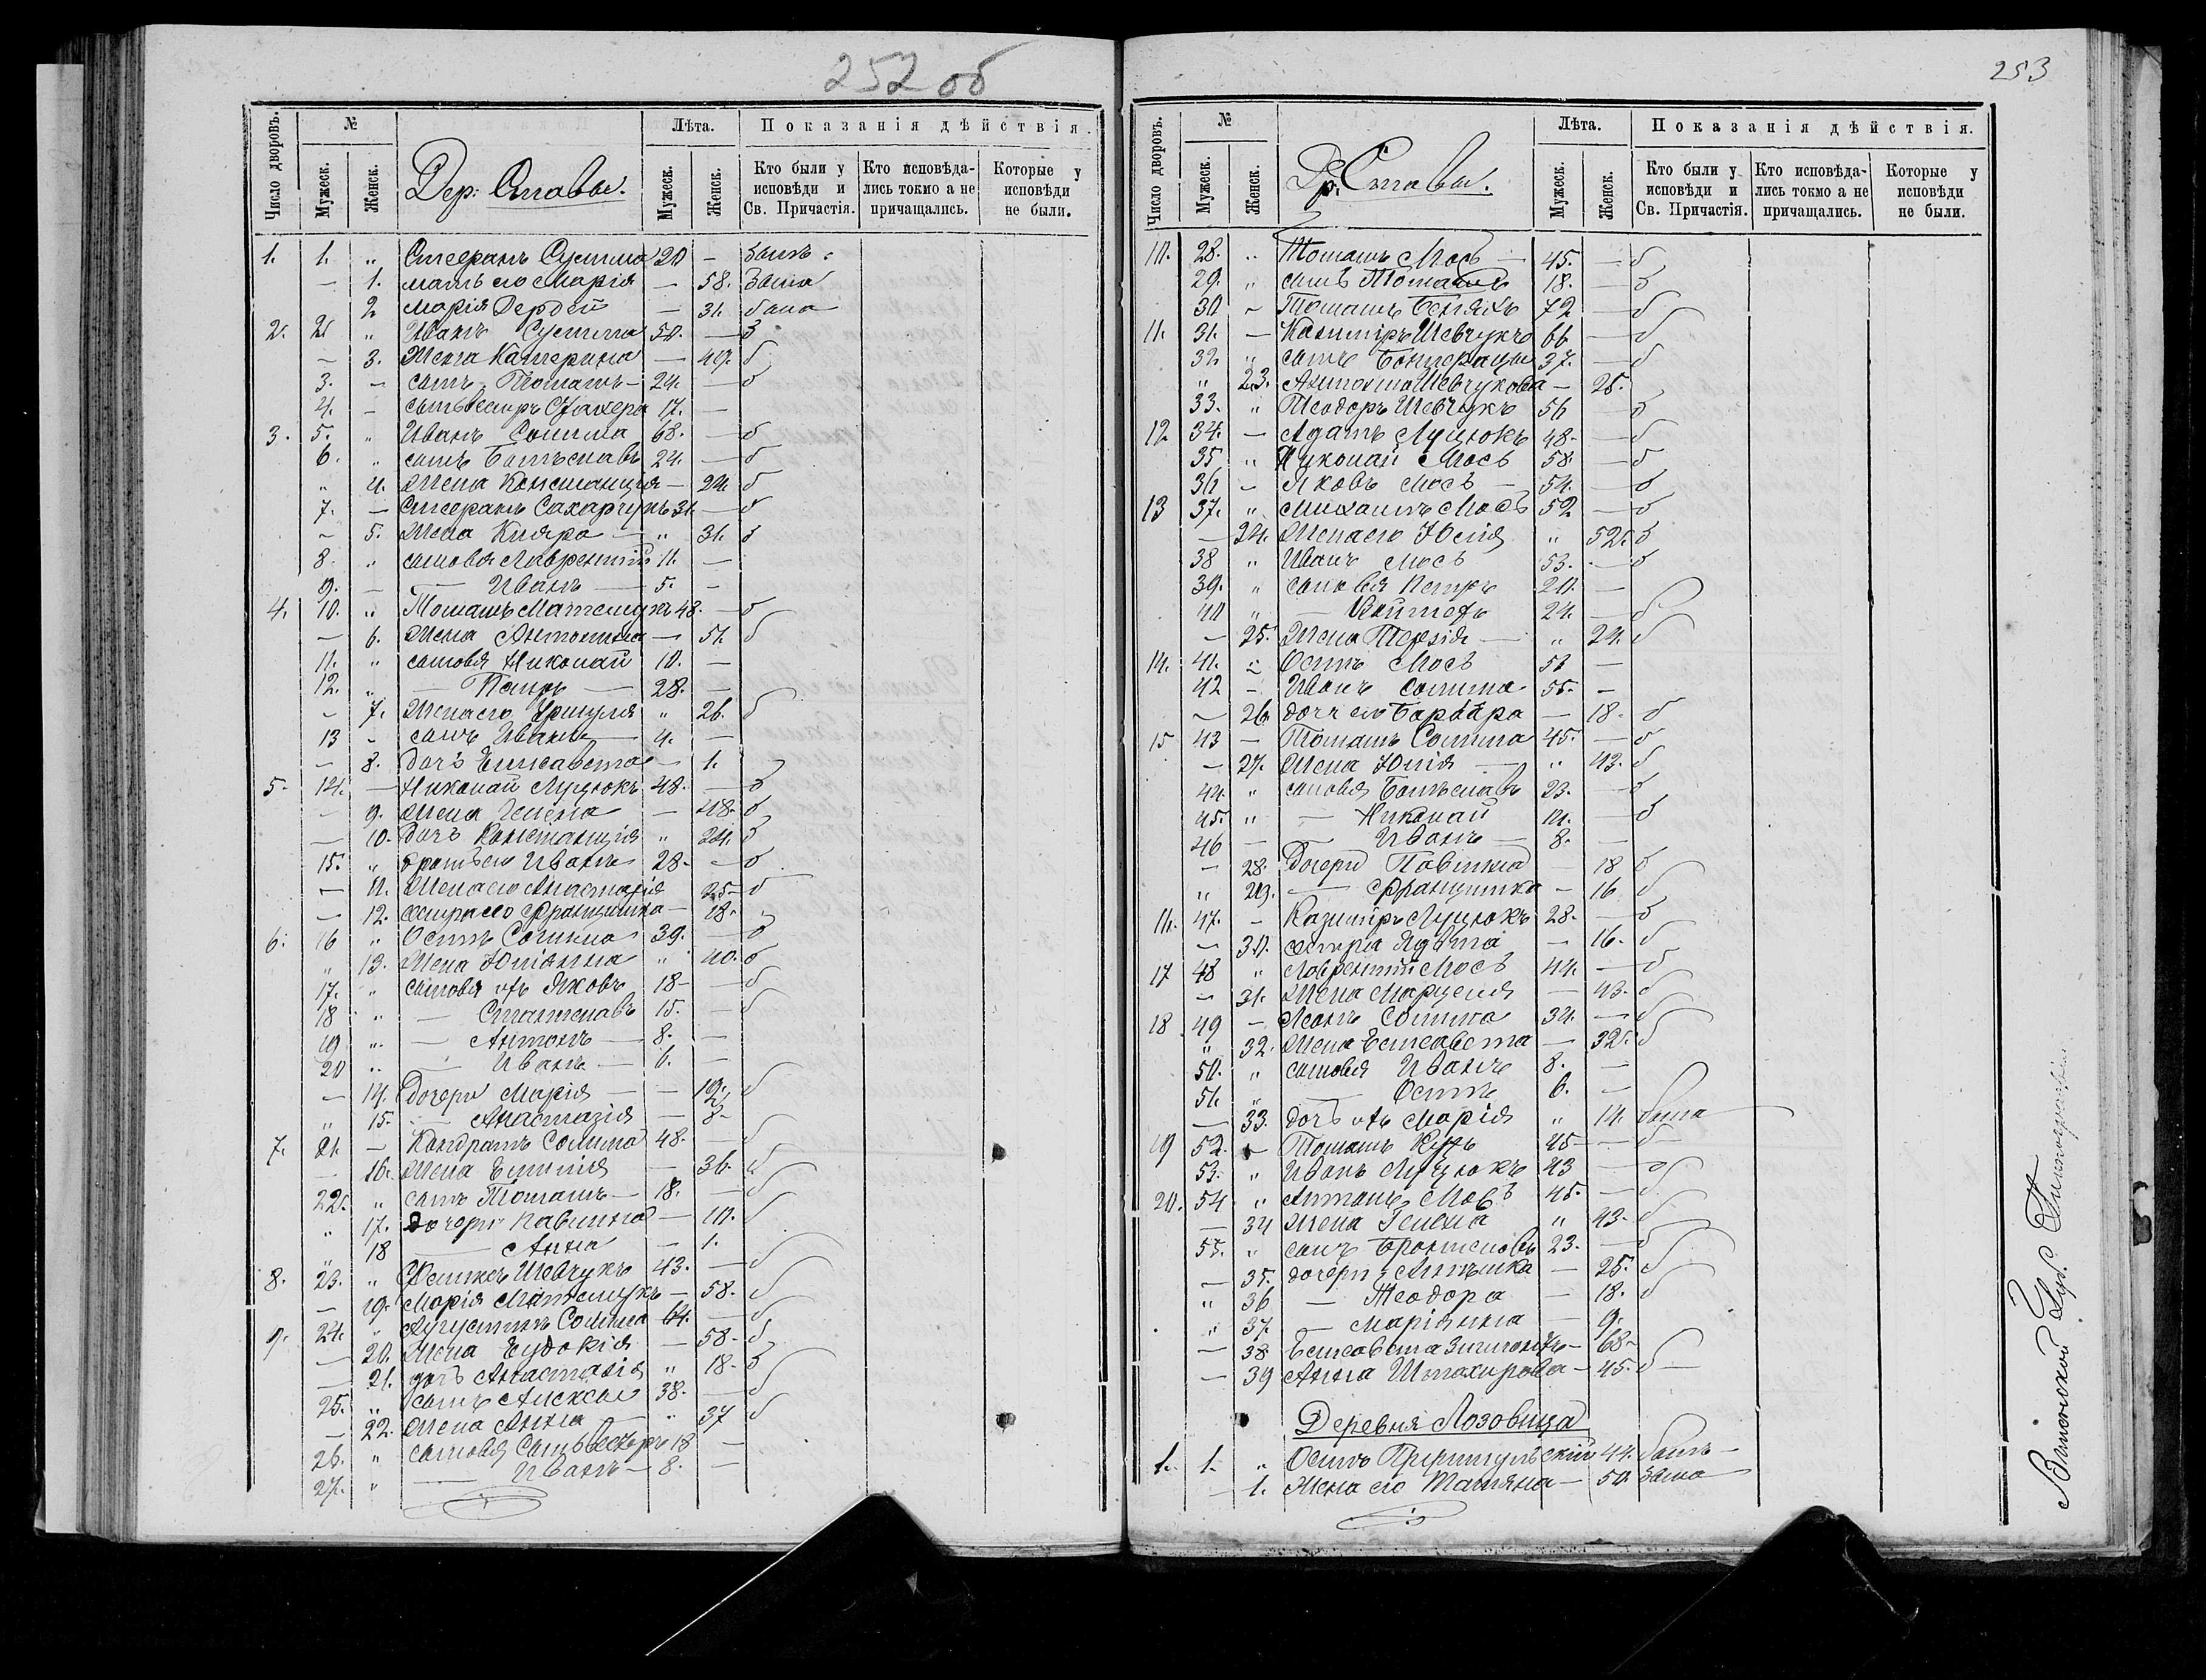 252 об
Число дворовъ. № Лѣта. Показанія дѣйствія.
Мужеск. Женск. Дер: Ставы. Мужеск. Женск. Кто были у исповѣди и Св. Причастія. Кто исповѣда-лись токмо а не причащались. Которые у исповѣди не были.
1. 1. " Стефанъ 20 - былъ
- 1. мать его Марія - 58. была
2. Марія - 31. была
2. 2. " Иванъ 50. - б
- 3. Жена Катерина - 49. б
3. - сынъ Томашъ - 24. - б
4. - 17. -
3. 5. " Иванъ Солима 68. - б
6. " сынъ Болеславъ 24. - б
" 4. Жена Констанція - 24. б
7. - Стефанъ Сахарчукъ 31. - б
- 5. Жена Кляра - " 31. б
8. " сыновья Лаврентій 11. -
9. - - Иванъ - 5. -
4. 10. " Томашъ 48. - б
- 6. Жена Антонина - 51. б
11. " сыновья Николай 10. -
12. " - - 28. -
- 7. Жена его Уршуля " 26. б
13 - сынъ Иванъ 4. -
- 8. дочь Елисавета - 1.
5. 14. - Николай Луцюкъ 48. - б
- 9. Жена Гелена - 48. б
- 10. дочь Констанція " 24. б
15. " братъ его Иванъ 28. - б
- 11. Жена его Анастазія 25 - б
- 12. сестра его Францишка - 18.
6. 16 " Осипъ Солима 39. - б
" 13. Жена Юліанна " 40. б
17. " сыновья ихъ Яковъ 18 - б
18 " - Станиславъ 15. - б
19 " - Антонъ - 8. -
20 " - Иванъ - 6. -
- 14. Дочери Марія - - 19. б
" 15. - Анастазія - 8 -
7. 21. - Кондратъ Солима 48. - б
- 16. Жена Емилія - 36. б
22. " сынъ Томашъ - 18. - б
" 17. Дочери Павлина - 10. б
" 18 - Анна - 1.
8. 23. " Феликсъ Шевчукъ 43. - б
- 19. Марія - 58. б
9. 24. " Августинъ Солима 64. - б
- 20. Жена Евдокія - 58. б
- 21. дочь Анастазія " 18. б
25. " сынъ Алексы 38. - б
- 22. Жена Анна " 37 б
26. " сыновья 18 -
27. " - Иванъ - 8. -
253
Число дворовъ. № Лѣта. Показанія дѣйствія.
Мужеск. Женск. Др: Ставы. Мужеск. Женск. Кто были у исповѣди и Св. Причастія. Кто исповѣда-лись токмо а не причащались. Которые у исповѣди не были.
10. 28. " Томашъ Мось - 45. - б
29. " сынъ Томашъ 18. - б
30 - Томашъ 72 - б
11. 31. - Казиміръ Шевчукъ 66 - б
32. " сынъ 37. - б
" 23. Шевчукова - 25.
33. " Теодоръ Шевчукъ 56 - б
12 34. - Адамъ Луцюкъ 48. - б
35 " Николай Мось 58. - б
36 - Яковъ Мось - 54. - б
13 37. " Михаилъ Мось 52 - б
- 24. Жена его Юлія " 52. б
38 " Иванъ Мось 53. - б
39. " сыновья Петръ 20. -
40 " - Войтехъ 24. - б
- 25. Жена Терезія - " 24. б
14. 41. " Осипъ Мось -
42 - Иванъ Солима 55. -
- 26. дочь его Барбара - 18. б
15 43 - Томашъ Солима 45. - б
- 27. Жена Юлія - " 43. б
44. " сыновья Болеславъ 23. - б
45. " - Николай - б
46 - Иванъ - 8. -
- 28. Дочери Павлина - 18 б
" 29. - Францишка - 16 б
16. 47. - Казиміръ Луцюкъ 28. - б
- 30. сестра - 16. б
17 48 " Лаврентій Мось 44. - б
- 31. Жена Марцеля - 43. б
18 49 - Леонъ Солима 34. - б
" 32. Жена Елисавета - 32. б
50. " сыновья Иванъ 8. -
51. " - Осипъ 6. -
- 33. дочь ихъ Марія " 14. была
19 52. Томашъ 45 - б
53. " Иванъ Луцюкъ 43 - б
20. 54 " Антонъ Мось 45. - б
- 34 Жена Гелена " 43. б
55. " сынъ Брониславъ 23. - б
- 35. дочери - 25. б
" 36 - Теодора - 18. б
" 37. - Маріянна 9.
- 38 Елисавета - 68 -
- 39 Анна - 45. б
Деревня Лозовица
1. 1. " Осипъ 44. былъ
- 1. Жена его Татіяна - 50. была
Губ. Типографіи